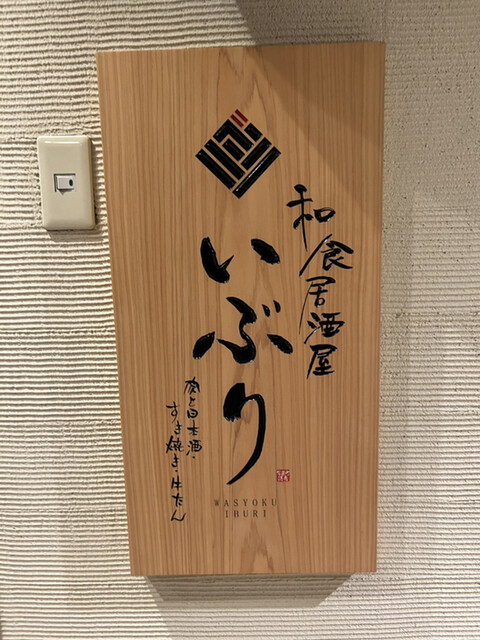 和食居酒屋
いぶり
肉と日本酒・
すき焼き・牛たん
WASYOKU
IBURI